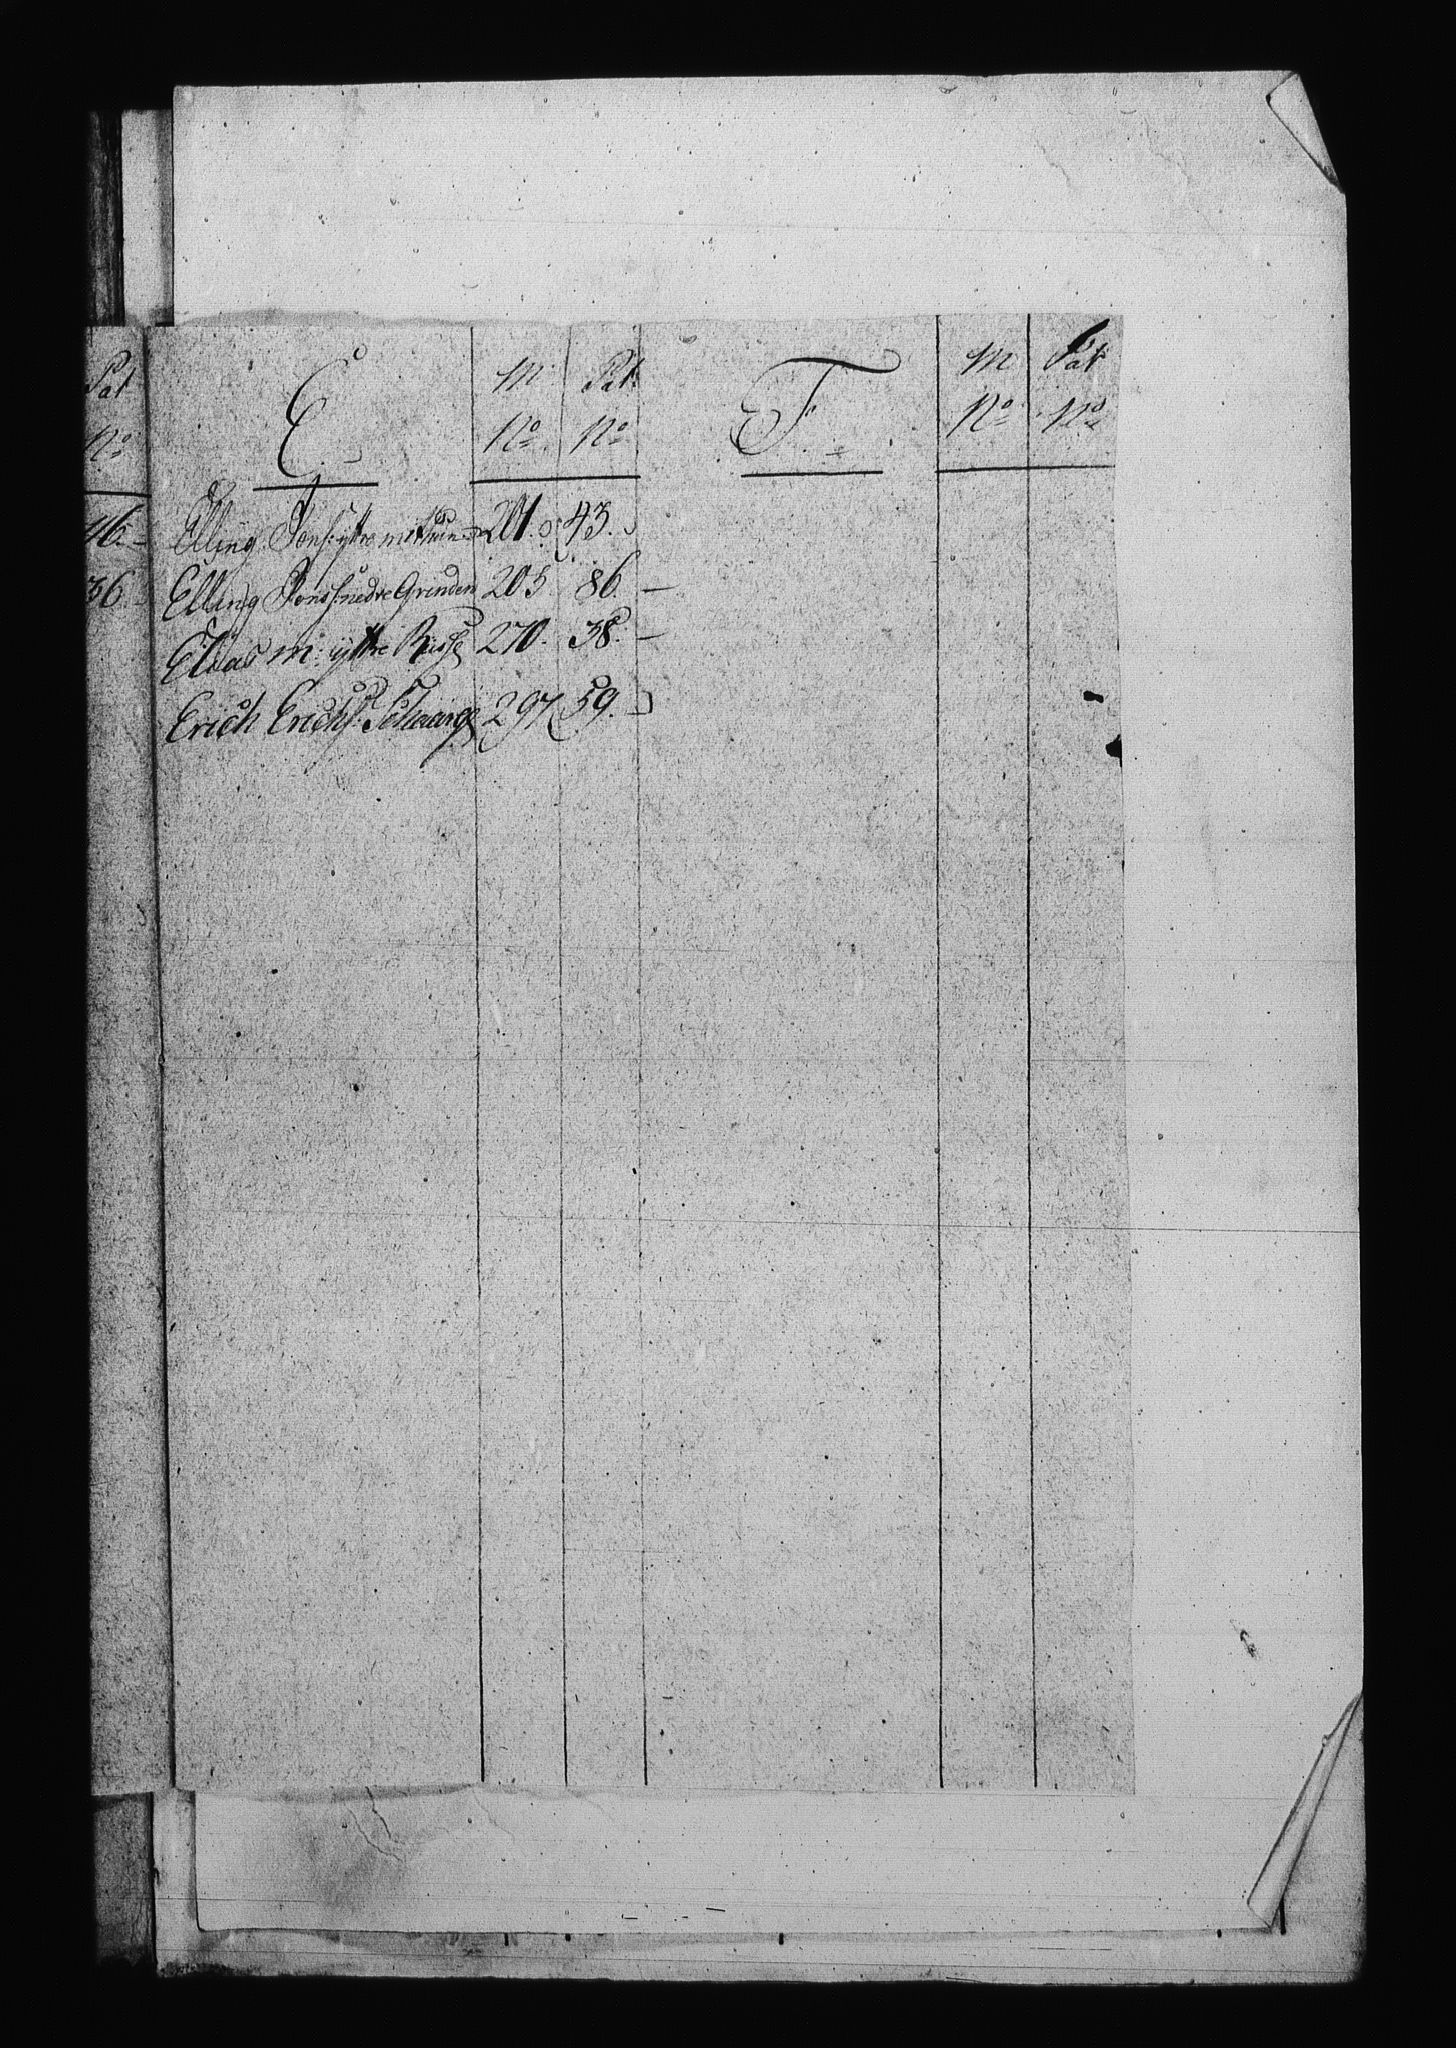 Pat
No
46.
36
E.
M
No
Pat.
No
Elling Jons: ytre 201. 43.
Elling Jonss: nedre Grinden 205 86. —
Elias M: yttre Risse 270. 38. —
Erich Erichs. 297 59.
F.
M
No
Pat
No